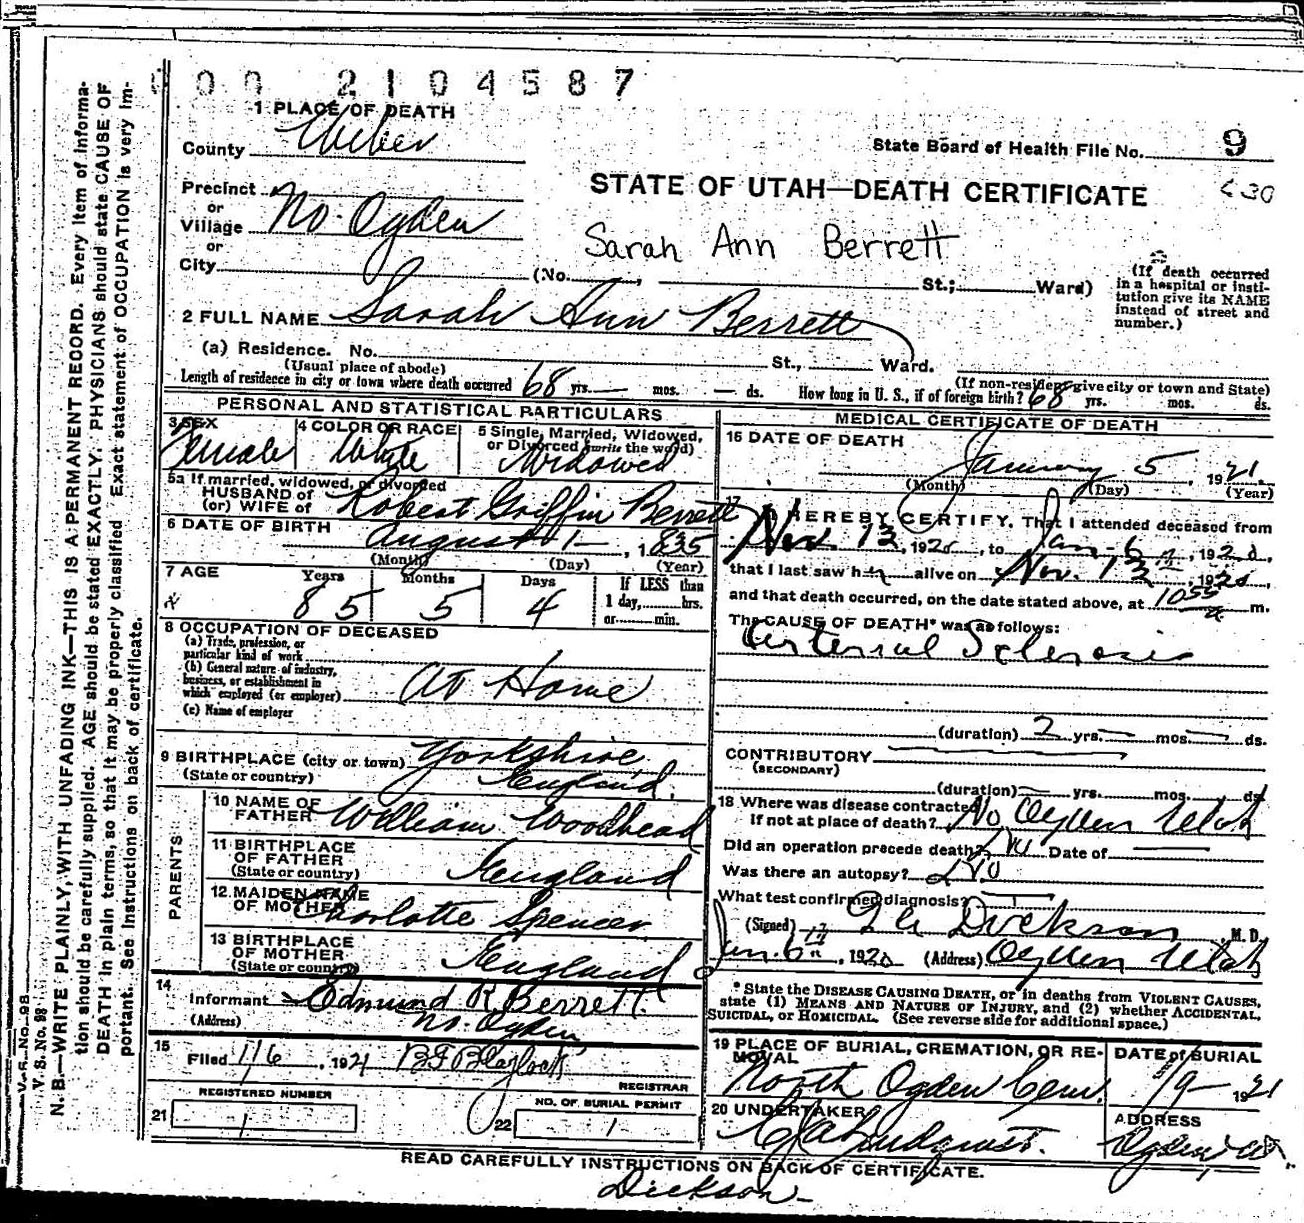 00 2104587
1 PLACE OF DEATH
County Weber
State Board of Health File No. 9
STATE OF UTAH—DEATH CERTIFICATE
230
Precinct
or
Village No. Ogden
or
Sarah Ann Berrett
City (No. , St.; Ward)
(If death occurred in a hospital or institution give its NAME instead of street and number.)
2 FULL NAME Sarah Ann Berrett
(a) Residence. No. St., Ward.
(Usual place of abode) (If non-resident give city or town and State)
Length of residence in city or town where death occurred 68 yrs. — mos. — ds. How long in U. S., if of foreign birth? 68 yrs. mos. ds.
PERSONAL AND STATISTICAL PARTICULARS
3 SEX Female
4 COLOR OR RACE White
5 Single, Married, Widowed, or Divorced (write the word) Widowed
5a If married, widowed, or divorced
HUSBAND of
(or) WIFE of Robert Griffin Berrett
6 DATE OF BIRTH August 1 — , 1835
(Month) (Day) (Year)
7 AGE Years Months Days If LESS than
85 5 4 1 day, hrs.
or min.
8 OCCUPATION OF DECEASED
(a) Trade, profession, or particular kind of work
(b) General nature of industry, business, or establishment in which employed (or employer) At Home
(c) Name of employer
9 BIRTHPLACE (city or town) Yorkshire
(State or country) England
PARENTS
10 NAME OF FATHER William Woodhead
11 BIRTHPLACE OF FATHER
(State or country) England
12 MAIDEN NAME OF MOTHER Charlotte Spencer
13 BIRTHPLACE OF MOTHER
(State or country) England
14
Informant Edmund R Berrett
(Address) No. Ogden
15
Filed 1/6, 1921 B F Blaylock
REGISTRAR
REGISTERED NUMBER
21 1
NO. OF BURIAL PERMIT
22 1
MEDICAL CERTIFICATE OF DEATH
16 DATE OF DEATH
January 5 1921
(Month) (Day) (Year)
17 I HEREBY CERTIFY, That I attended deceased from
Nov. 13, 1920, to Jan-6th, 1920,
that I last saw her alive on Nov. 13, 1920
and that death occurred, on the date stated above, at 1055 a m.
The CAUSE OF DEATH* was as follows:
Arterial Sclerosis
(duration) 2 yrs. — mos. — ds.
CONTRIBUTORY
(SECONDARY)
(duration) — yrs. mos. ds.
18 Where was disease contracted
if not at place of death? No Ogden Utah
Did an operation precede death? No Date of —
Was there an autopsy? No
What test confirmed diagnosis? —
(Signed) Dickson M. D.
Jan. 6th, 1920 (Address) Ogden Utah
* State the DISEASE CAUSING DEATH, or in deaths from VIOLENT CAUSES, state (1) MEANS AND NATURE OF INJURY, and (2) whether ACCIDENTAL, SUICIDAL, or HOMICIDAL. (See reverse side for additional space.)
19 PLACE OF BURIAL, CREMATION, OR REMOVAL
North Ogden Cem.
DATE of BURIAL
1/9 - 1921
20 UNDERTAKER
Lindquist.
ADDRESS
Ogden, Ut.
READ CAREFULLY INSTRUCTIONS ON BACK OF CERTIFICATE.
Dickson
V. S. No. 98
N. B.—WRITE PLAINLY, WITH UNFADING INK—THIS IS A PERMANENT RECORD. Every item of information should be carefully supplied. AGE should be stated EXACTLY. PHYSICIANS should state CAUSE OF DEATH in plain terms, so that it may be properly classified. Exact statement of OCCUPATION is very important. See instructions on back of certificate.